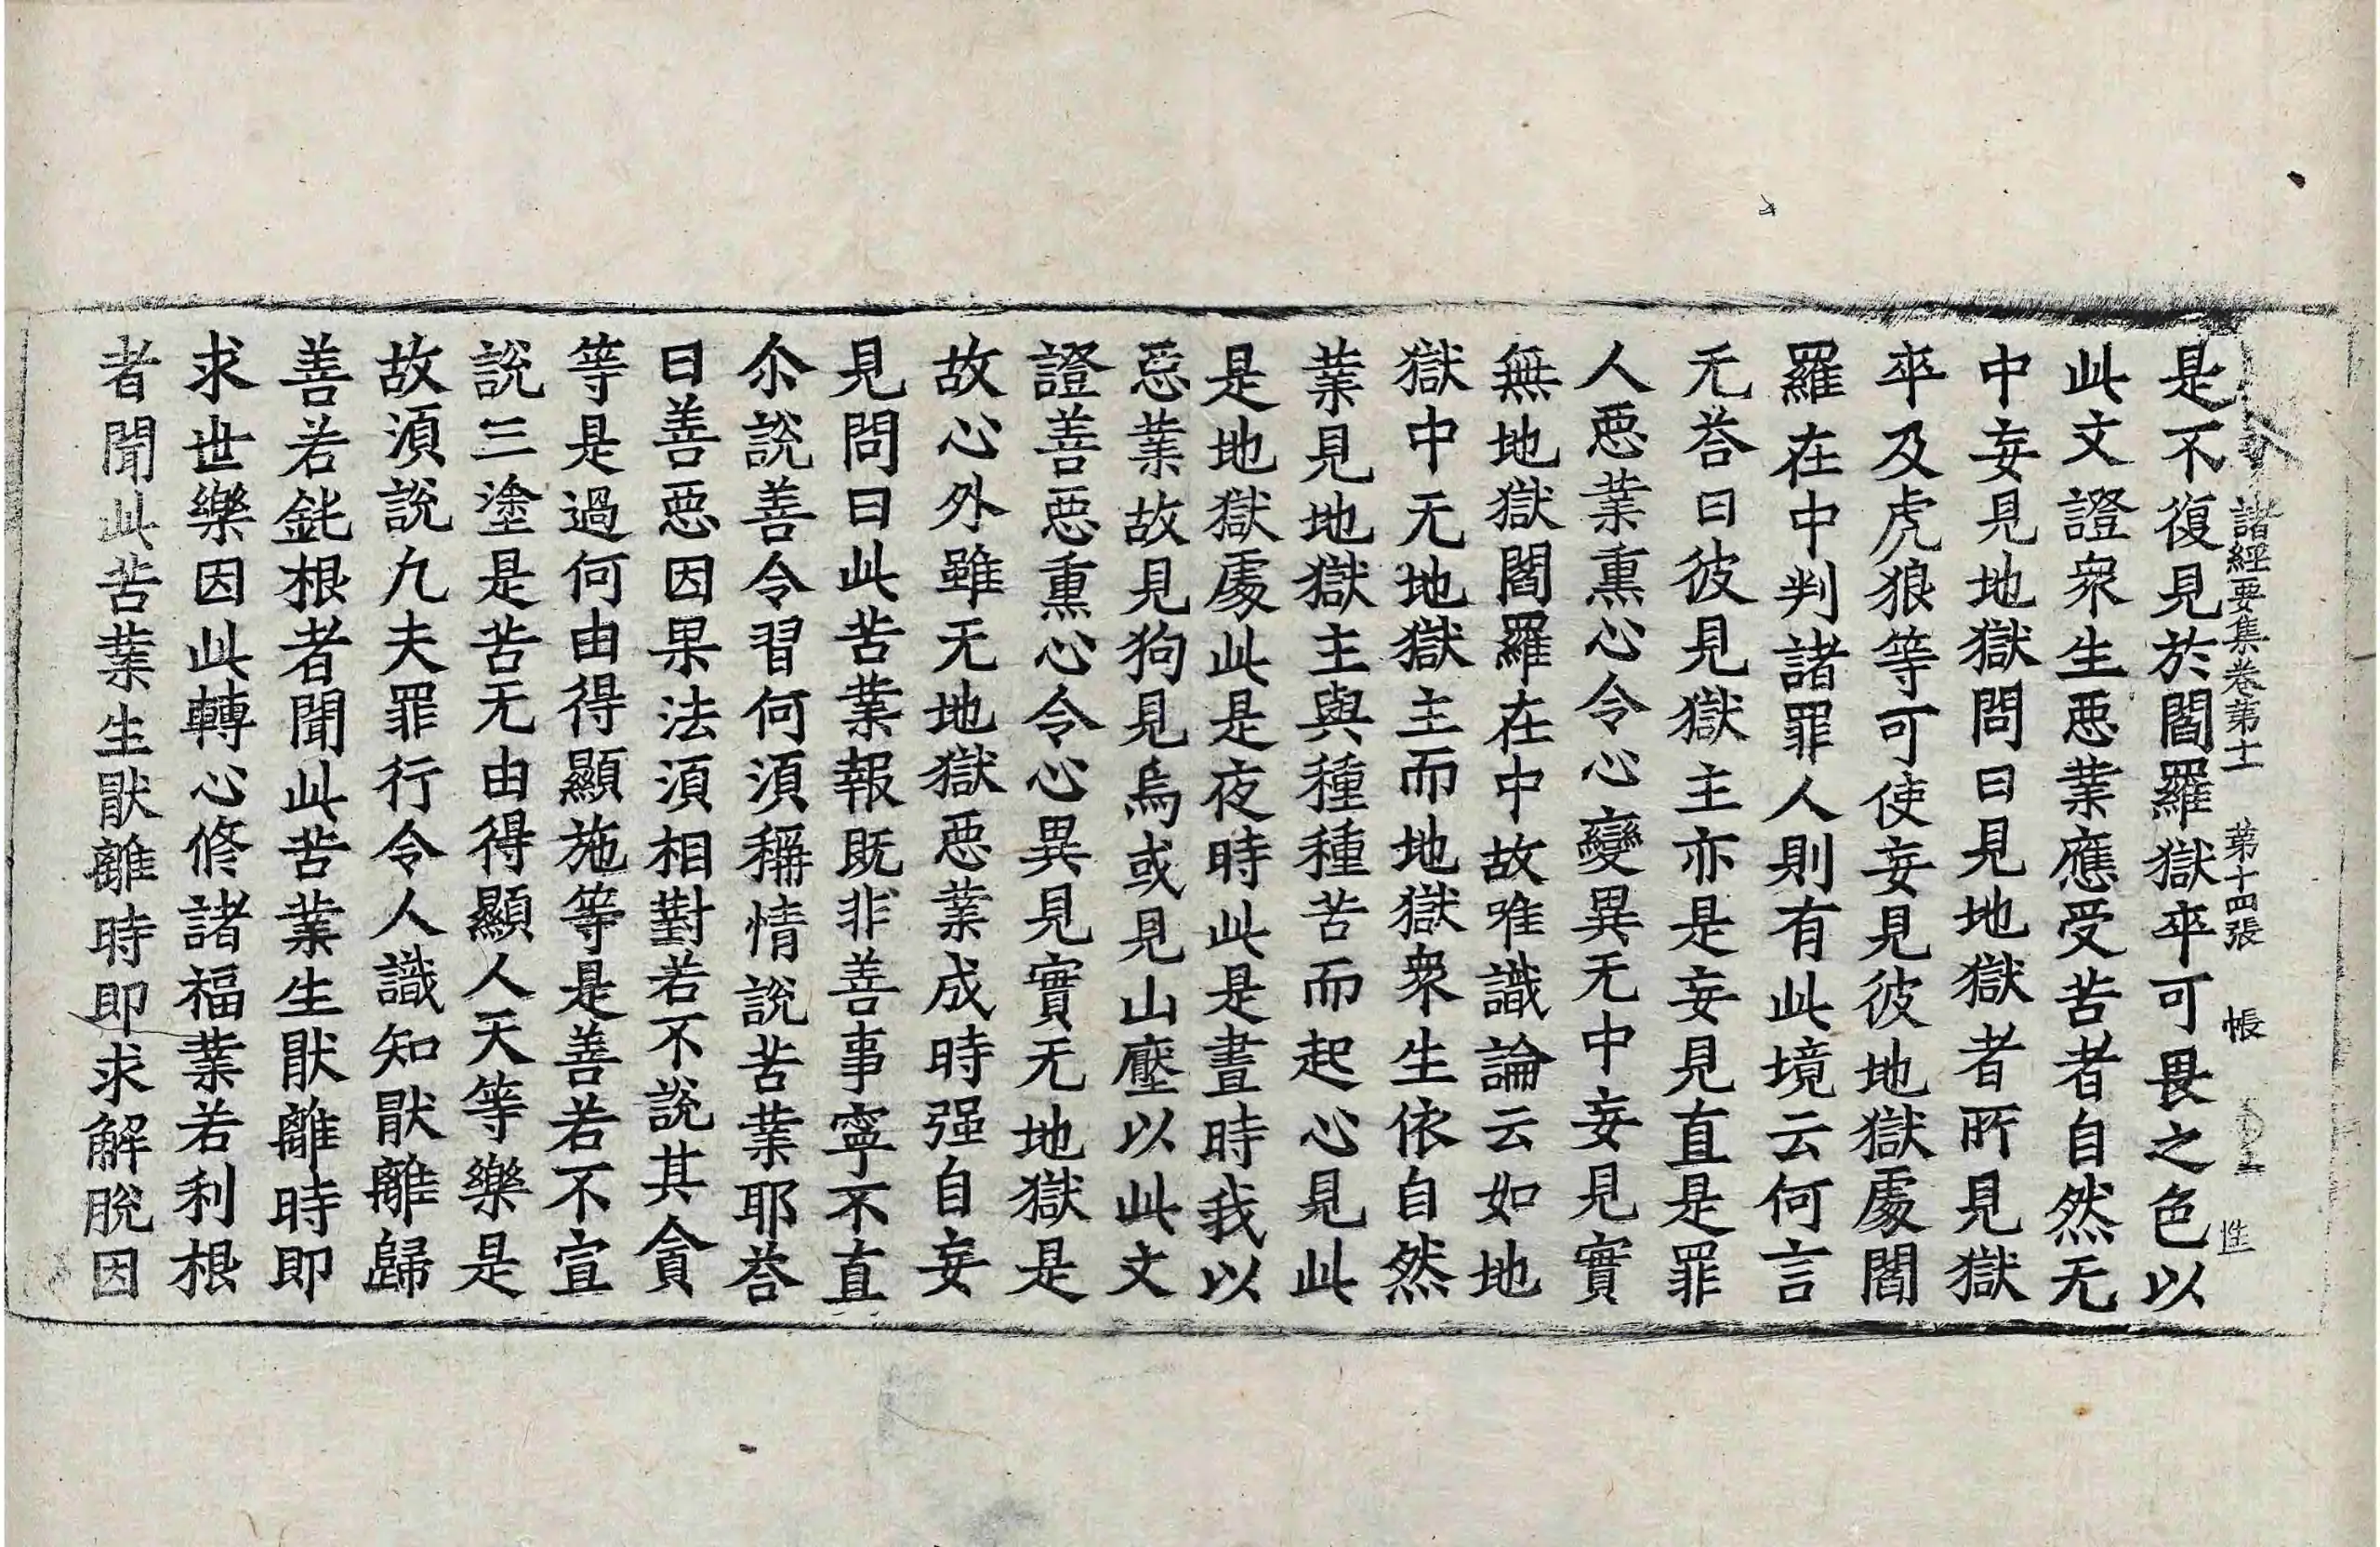 諸經要集卷第十二 第十四張 帳 性
是不復見於閻羅獄卒可畏之色以
此文證衆生惡業應受苦者自然无
中妄見地獄問曰見地獄者所見獄
卒及虎狼等可使妄見彼地獄處閻
羅在中判諸罪人則有此境云何言
无荅曰彼見獄主亦是妄見直是罪
人惡業熏心令心變異无中妄見實
無地獄閻羅在中故唯識論云如地
獄中无地獄主而地獄衆生依自然
業見地獄主與種種苦而起心見此
是地獄處此是夜時此是晝時我以
惡業故見狗見烏或見山壓以此文
證善惡熏心令心異見實无地獄是
故心外雖无地獄惡業成時强自妄
見問曰此苦業報既非善事寧不直
尒說善令習何須稱情說苦業耶荅
曰善惡因果法須相對若不說其貪
等是過何由得顯施等是善若不宣
說三塗是苦无由得顯人天等樂是
故須說九夫罪行令人識知猒離歸
善若鈍根者聞此苦業生猒離時即
求世樂因此轉心修諸福業若利根
者聞此苦業生猒離時即求解脫因